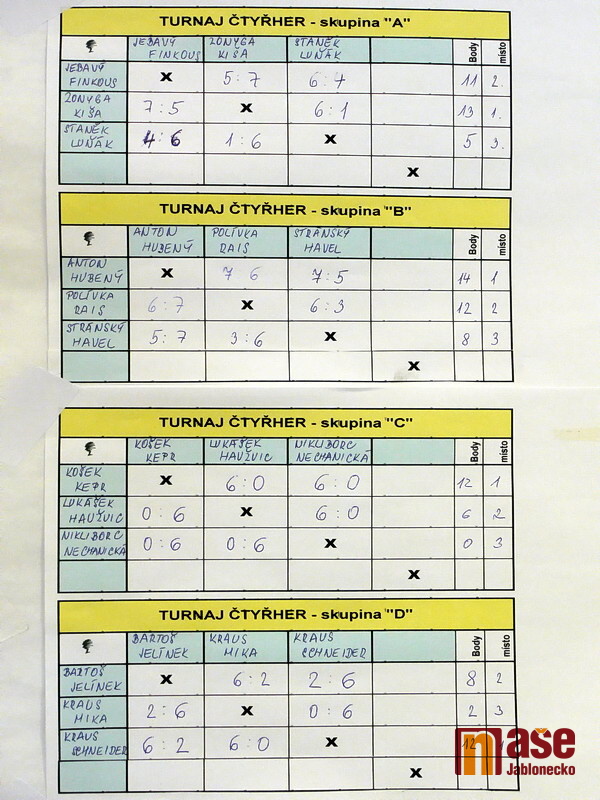 TURNAJ ČTYŘHER - skupina "A"
JEBAVÝ FINKOUS ZONYGA KIŠA STANĚK LUŇÁK Body místo
JEBAVÝ FINKOUS X 5:7 6:4 11 2.
ZONYGA KIŠA 7:5 X 6:1 13 1.
STANĚK LUŇÁK 4:6 1:6 X 5 3.
X
TURNAJ ČTYŘHER - skupina "B"
ANTON HUBENÝ POLÍVKA RAIS STRÁNSKÝ HAVEL Body místo
ANTON HUBENÝ X 7 6 7:5 14 1
POLÍVKA RAIS 6:7 X 6:3 12 2
STRÁNSKÝ HAVEL 5:7 3:6 X 8 3
X
TURNAJ ČTYŘHER - skupina "C"
KOŠEK KEPR LUKÁŠEK HAUŽVIC NIKLIBORC NECHANICKÁ Body místo
KOŠEK KEPR X 6:0 6:0 12 1
LUKÁŠEK HAUŽVIC 0:6 X 6:0 6 2
NIKLIBORC NECHANICKÁ 0:6 0:6 X 0 3
X
TURNAJ ČTYŘHER - skupina "D"
BARTOŠ JELÍNEK KRAUS MIKA KRAUS SCHNEIDER Body místo
BARTOŠ JELÍNEK X 6:2 2:6 8 2
KRAUS MIKA 2:6 X 0:6 2 3
KRAUS SCHNEIDER 6:2 6:0 X 12 1
X
naše
Jablonecko